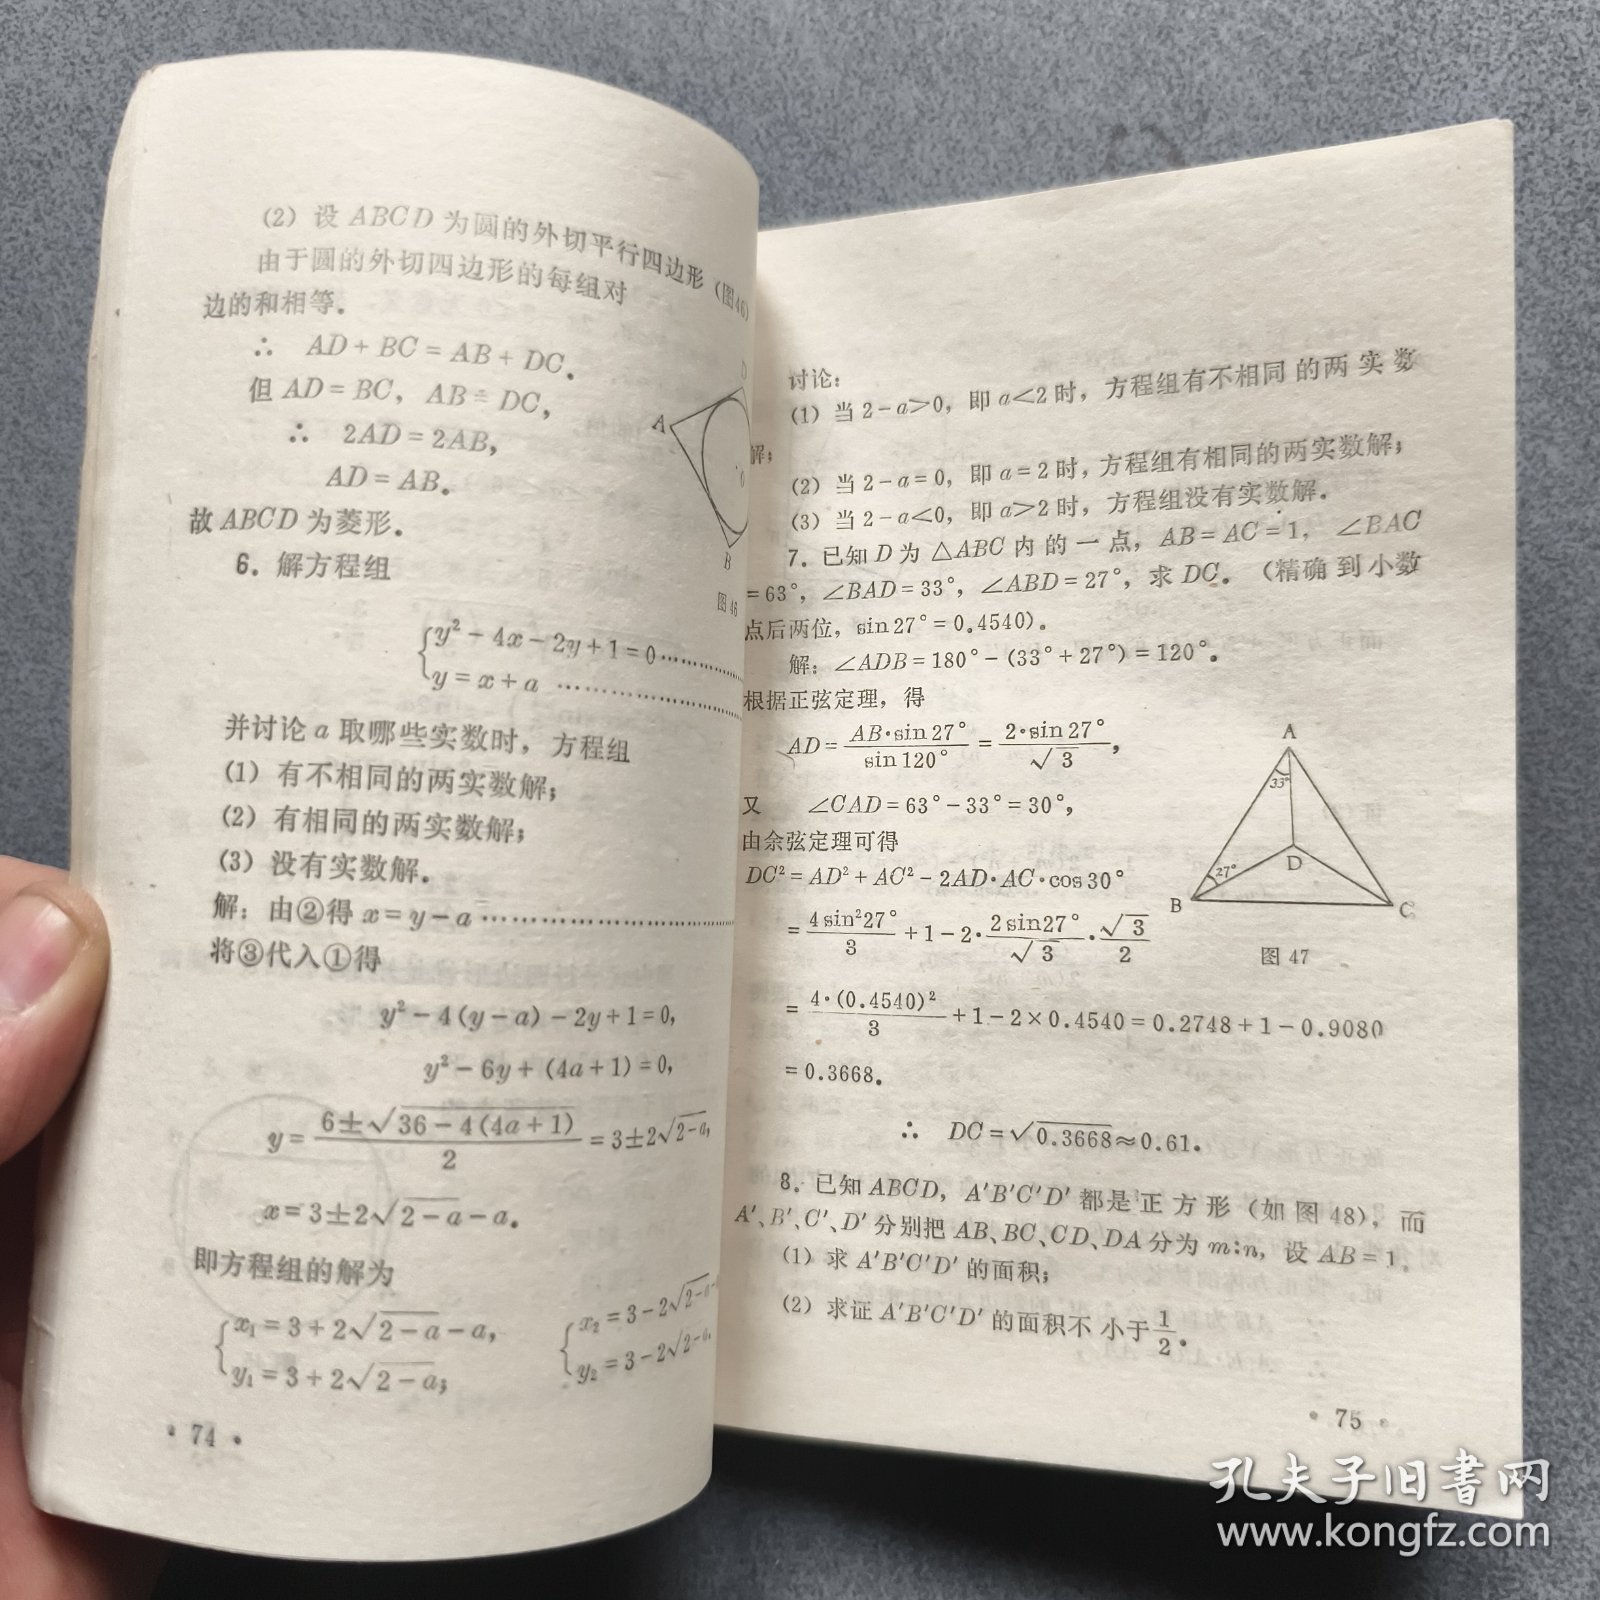 (2) 设 ABCD 为圆的外切平行四边形(图46)
由于圆的外切四边形的每组对
边的和相等.
∴ AD+BC=AB+DC.
但 AD=BC, AB=DC,
∴ 2AD=2AB,
AD=AB.
故 ABCD 为菱形.
A
D
O
B
图 46
6. 解方程组
{y²-4x-2y+1=0…………
{y=x+a …………………
并讨论 a 取哪些实数时, 方程组
(1) 有不相同的两实数解;
(2) 有相同的两实数解;
(3) 没有实数解.
解: 由②得 x=y-a …………………………
将③代入①得
y²-4(y-a)-2y+1=0,
y²-6y+(4a+1)=0,
y=(6±√(36-4(4a+1)))/2=3±2√(2-a),
x=3±2√(2-a)-a.
即方程组的解为
{x₁=3+2√(2-a)-a,
{y₁=3+2√(2-a);
{x₂=3-2√(2-a)-
{y₂=3-2√(2-a).
· 74 ·
讨论:
(1) 当 2-a>0, 即 a<2 时, 方程组有不相同的两实数
解;
(2) 当 2-a=0, 即 a=2 时, 方程组有相同的两实数解;
(3) 当 2-a<0, 即 a>2 时, 方程组没有实数解.
7. 已知 D 为 △ABC 内的一点, AB=AC=1, ∠BAC
=63°, ∠BAD=33°, ∠ABD=27°, 求 DC. (精确到小数
点后两位, sin27°=0.4540).
解: ∠ADB=180°-(33°+27°)=120°.
根据正弦定理, 得
AD=AB·sin27°/sin120°=2·sin27°/√3,
又 ∠CAD=63°-33°=30°,
由余弦定理可得
DC²=AD²+AC²-2AD·AC·cos30°
=4sin²27°/3+1-2·2sin27°/√3·√3/2
=4·(0.4540)²/3+1-2×0.4540=0.2748+1-0.9080
=0.3668.
∴ DC=√0.3668≈0.61.
A
33°
D
27°
B
C
图 47
8. 已知 ABCD, A′B′C′D′ 都是正方形 (如图 48), 而
A′、B′、C′、D′ 分别把 AB、BC、CD、DA 分为 m:n, 设 AB=1.
(1) 求 A′B′C′D′ 的面积;
(2) 求证 A′B′C′D′ 的面积不小于 1/2.
· 75 ·
孔夫子旧书网
www.kongfz.com